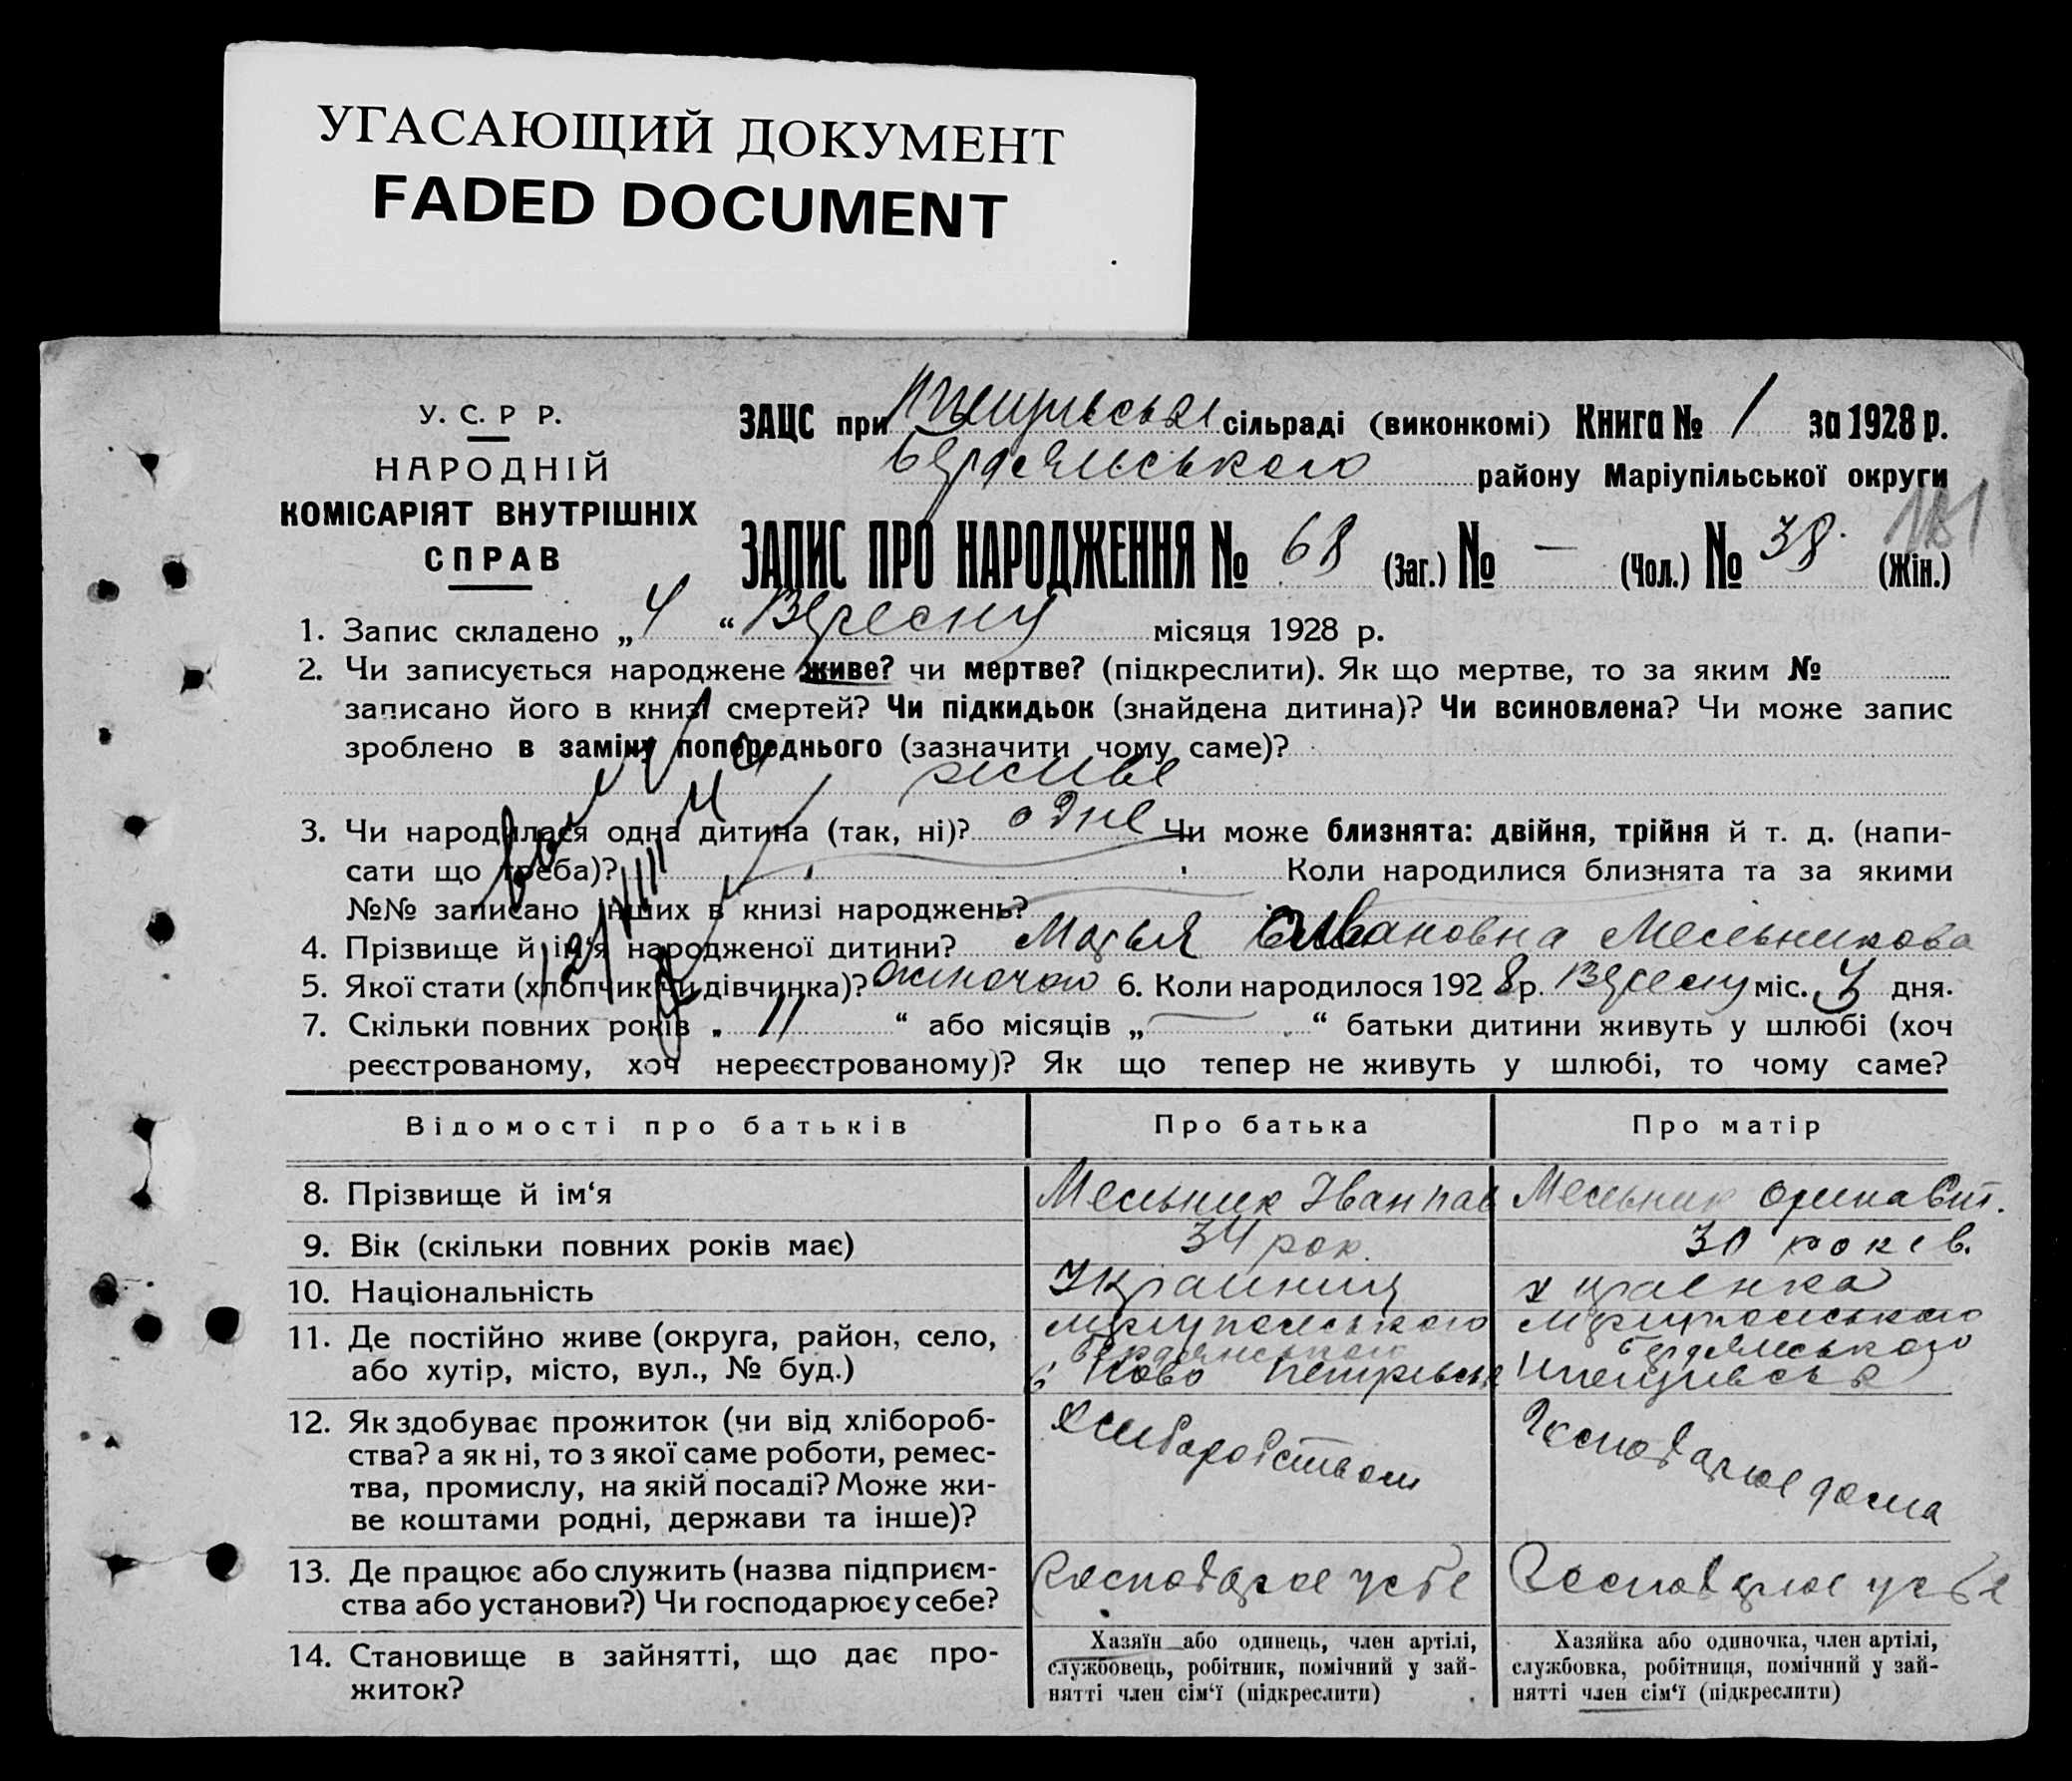 УГАСАЮЩИЙ ДОКУМЕНТ
FADED DOCUMENT
У. С. Р Р.
НАРОДНІЙ
КОМІСАРІЯТ ВНУТРІШНІХ
СПРАВ
ЗАЦС при сільраді (виконкомі) Книга № 1 за 1928 р.
Бердянського району Маріупільської округи
181
ЗАПИС ПРО НАРОДЖЕННЯ № 68 (Заг.) № — (Чол.) № 38 (Жін.)
1. Запис складено „ 4 “ Вересня місяця 1928 р.
2. Чи записується народжене живе? чи мертве? (підкреслити). Як що мертве, то за яким №
записано його в книзі смертей? Чи підкидьок (знайдена дитина)? Чи всиновлена? Чи може запис
зроблено в заміну попереднього (зазначити чому саме)?
живе
3. Чи народилася одна дитина (так, ні)? одне Чи може близнята: двійня, трійня й т. д. (напи-
сати що треба)? Коли народилися близнята та за якими
№№ записано інших в книзі народжень?
4. Прізвище й ім‘я народженої дитини? Марья Ивановна Мельникова
5. Якої стати (хлопчик чи дівчинка)? жіночою 6. Коли народилося 1928 р. Вересня міс. 3 дня.
7. Скільки повних років „ 11 “ або місяців „ — “ батьки дитини живуть у шлюбі (хоч
реєстрованому, хоч нереєстрованому)? Як що тепер не живуть у шлюбі, то чому саме?
Відомості про батьків Про батька Про матір
8. Прізвище й ім‘я Мельник Іван Пав Мельник Орина
9. Вік (скільки повних років має) 34 рок. 30 років.
10. Національність Українец українка
11. Де постійно живе (округа, район, село,
або хутір, місто, вул., № буд.)
Маріупольського Бердянського Ново Петрівськ
Маріупольського Бердянського
12. Як здобуває прожиток (чи від хлібороб-
ства? а як ні, то з якої саме роботи, ремес-
тва, промислу, на якій посаді? Може жи-
ве коштами родні, держави та інше)?
Хлиборобством Господарює дома
13. Де працює або служить (назва підприєм-
ства або установи?) Чи господарює у себе?
Господарює у себе Господарює у себе
14. Становище в зайнятті, що дає про-
житок?
Хазяїн або одинець, член артілі,
службовець, робітник, помічний у зай-
нятті член сім‘ї (підкреслити)
Хазяйка або одиночка, член артілі,
службовка, робітниця, помічний у зай-
нятті член сім‘ї (підкреслити)